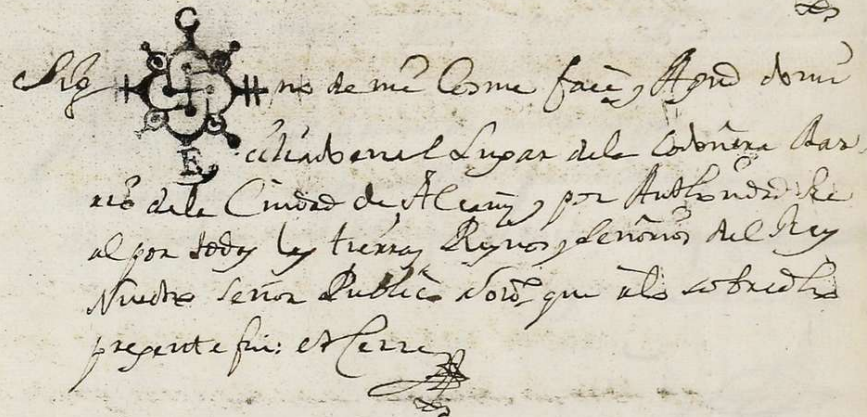 C
Sig no de mi Cosme faci y Agud domi
E ciliado en el Lugar dela Codoñera Bar
rio dela Ciudad de Alcañiz y por Authoridad Re
al por todas las tierras Reynos y Señorios del Rey
Nuestro Señor Publico Notº que alo sobredho
presente fui: et Cerre